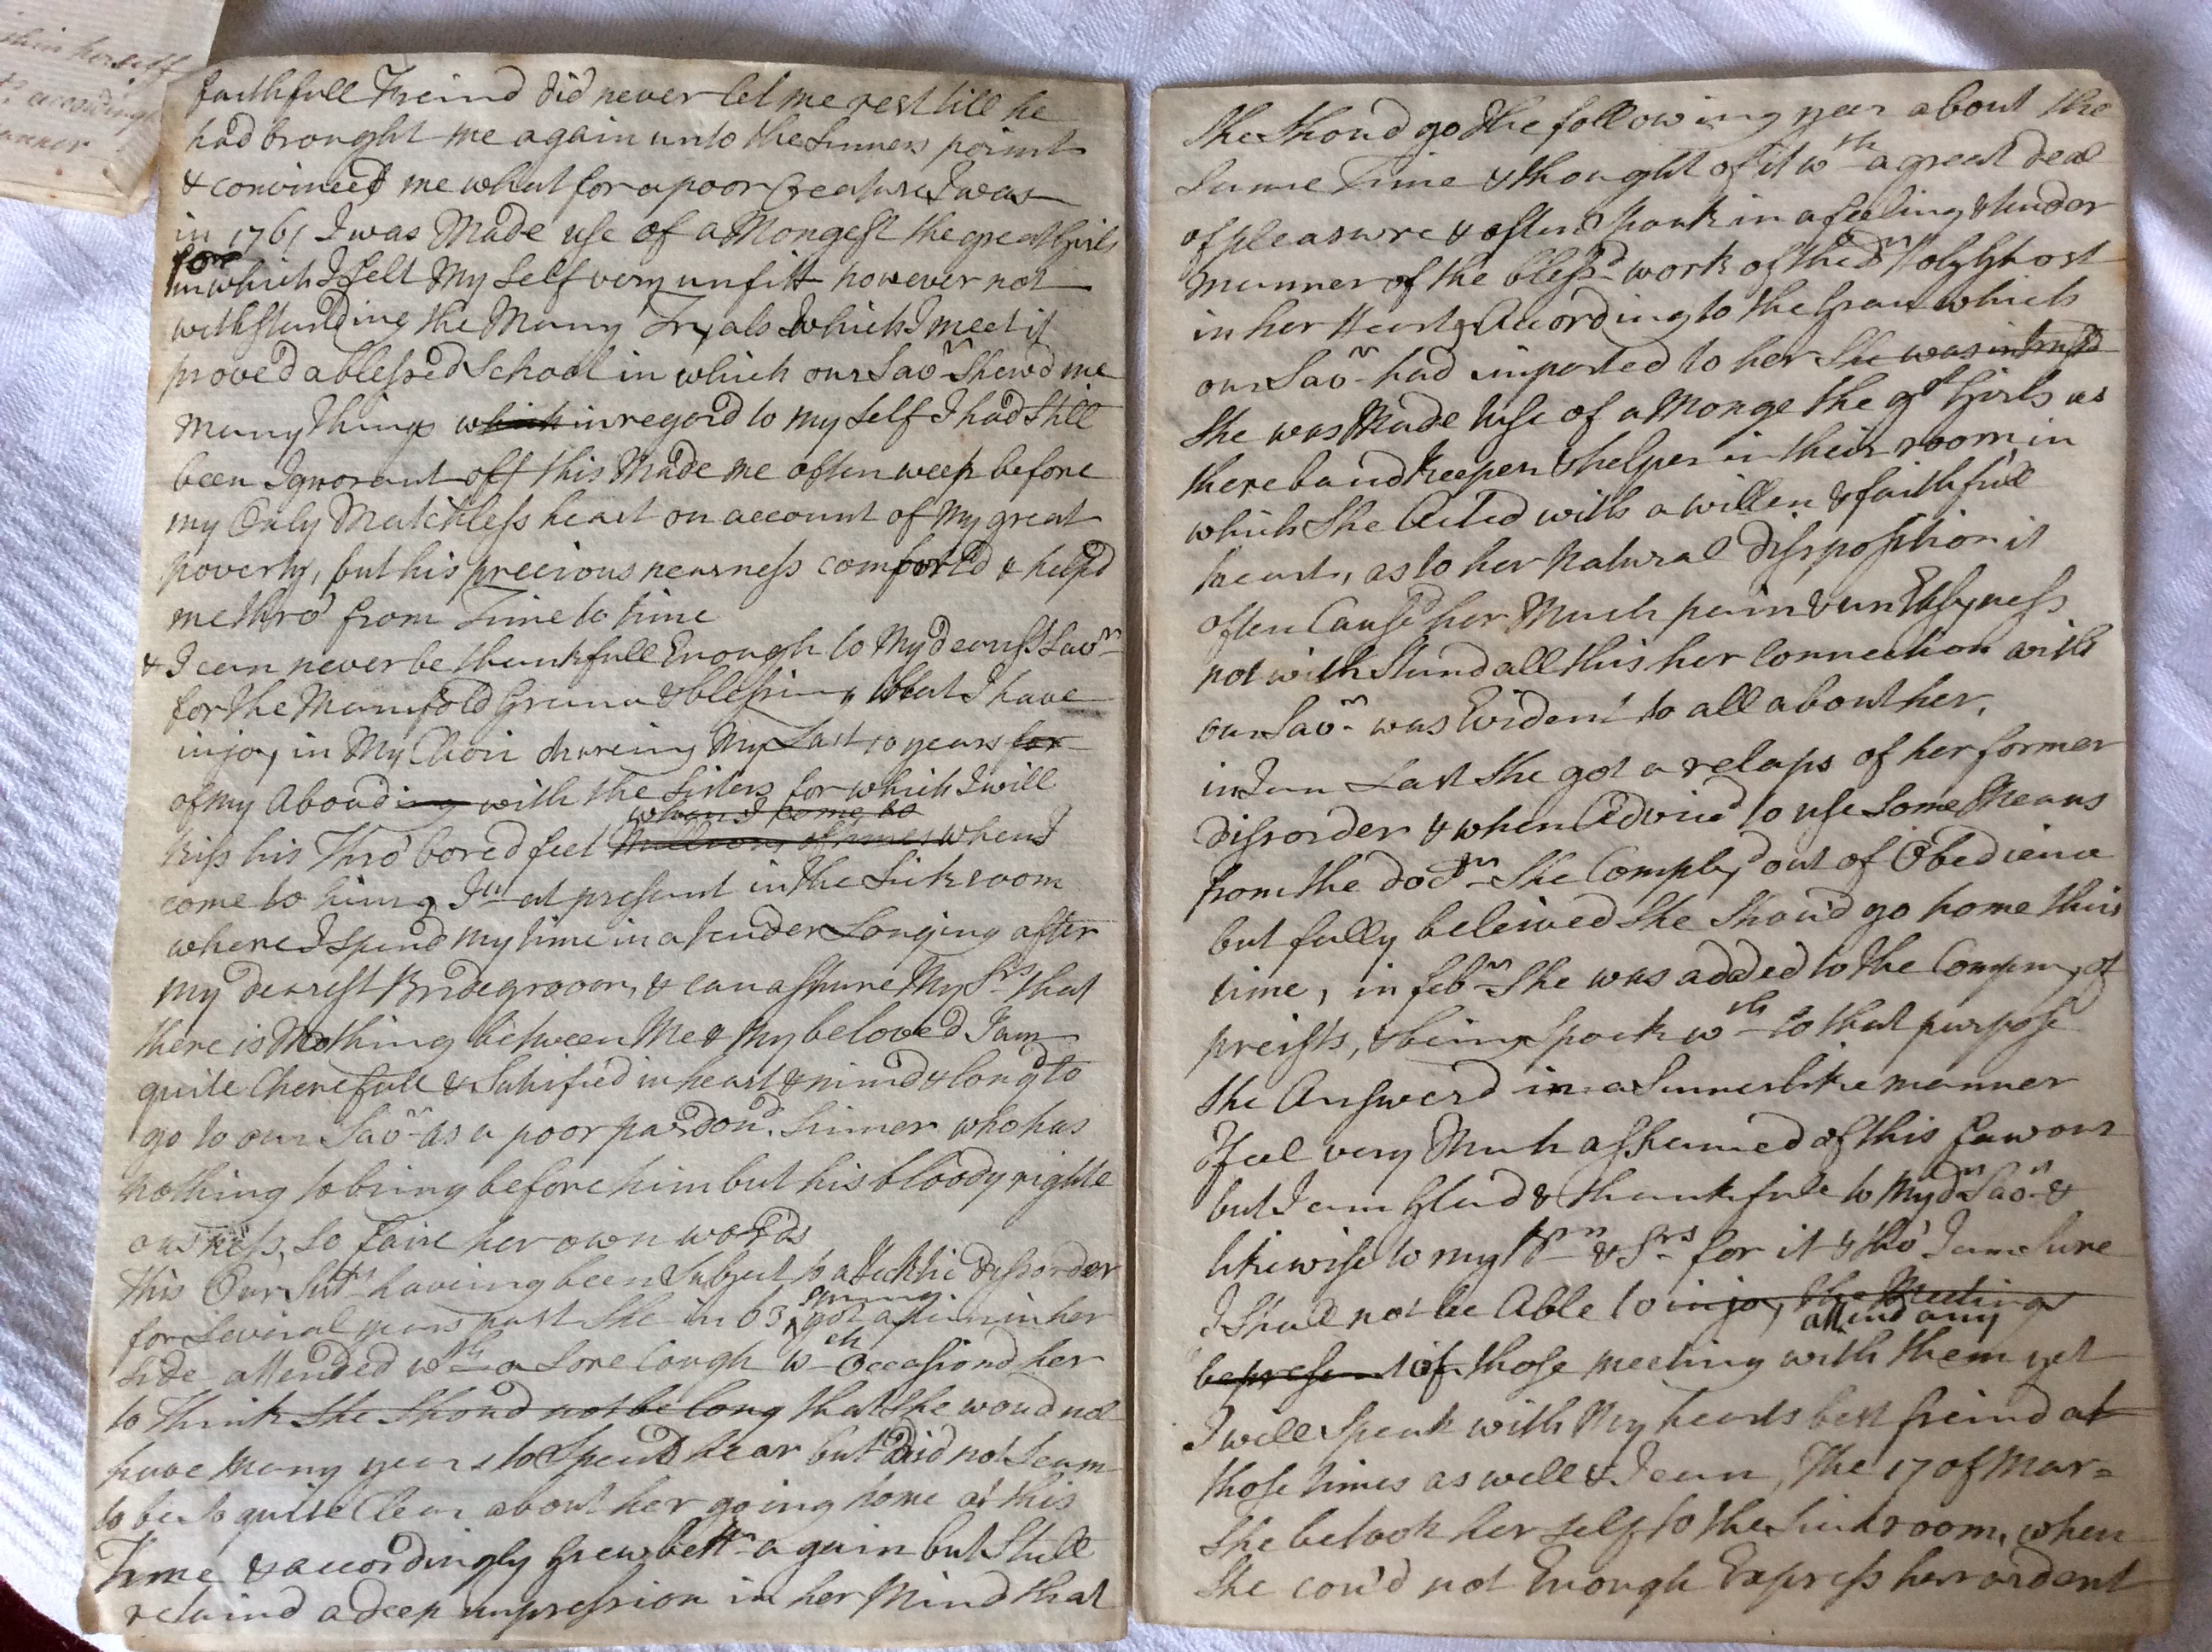 shin herself
accordingly
anner
faithfull Freind did never let me rest till he
had brought me again unto the Sinners point
& convinced me what for a poor Creature I was
in 1761 I was Made use of a Mongest the great Girls
for
in which I felt My Self very unfitt however not
withstanding the Many Tryals which I meet it
proved a blessed School in which our Savr Shew'd me
many things which in regard to my Self I had Still
been Ignorant off this Made me often weep before
my Only Matchless heart on account of My great
poverty, but his precious nearness comforted & helpd
me thro' from Time to time
& I can never be thankfull Enough to My dearest Savr
for the Manifold Grace & blessing what I have
injoy in My Choir dureing My Last 10 years for
of my Aboading with the Sisters for which I will
when I come to
kiss his Thro' bored feet Millions of times when I
come to him, I at present in the Sick room
where I spend my time in a tender Longing after
my dearest Bridegroom, & can assure My Srs that
there is Nothing between Me & My beloved I am
quite Cherefull & Satisfied in heart & mind & long to
go to our Savr as a poor pardon'd Sinner who has
nothing to bring before him but his bloody righte
ousness, So Farr her own words
this Our Sistr haveing been Subject to a Hecktic dissorder
for Several years past She in 63 got a pain in her
spring
side attended wth a Sore Cough wch Occasiond her
to Think She Shoud not be long that She woud not
have Many years to Spend hear but did not Seam
to be So quite Clear about her going home at this
Time & accordingly Grew bettr again but Still
retaind a deep impression in her Mind that
She Shoud go the following year about the
Same Time & thought of it wth a great deal
of pleasure & often Spoak in a feeling & tender
manner of the bless'd work of the dr Holy Ghost
in her Heart, According to the Grace which
our Savr had imparted to her She was intrusted
She was Made Use of a Monge the gt Girls as
there band keeper & helper in their room in
which She Acted with a willen & faithfull
heart, as to her Natural Dissposition it
often Caus'd her Much pain & unEasyness
not with Stand all this her Connection with
our Savr was Evident to all about her,
in Jan Last She got a relaps of her former
dissorder & when Advice'd to use Some Means
from the doctr She Comply'd out of Obedience
but fully beleived She Shou'd go home this
time, in febr She was added to the Company of
preists, & being Spoak wth to that purpose
She Answerd in a Sinnerlike manner
I feel very Much ashamed of this favour
but I am Glad & thankfull to My dr Savr &
likewise to my Brn & Srs for it & tho' I am Sure
I Shall not be Able to injoy the Meetings
attend any
be present of those meeting with them yet
I will Speak with My hearts best freind at
those times as well & I can, The 17 of Mar=
She betook her self to the Sick room, when
She cou'd not Enough Express her ardent